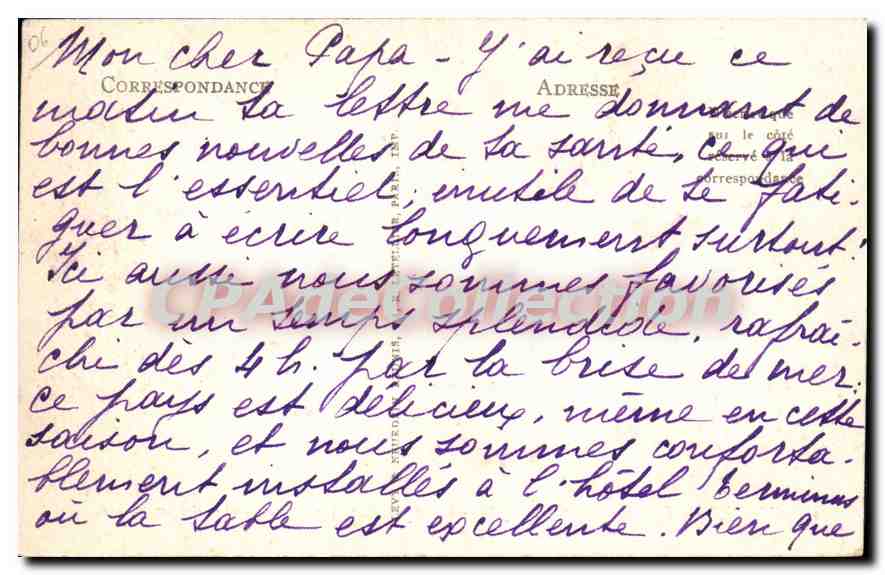 06
Mon cher Papa - J'ai reçu ce
CORRESPONDANCE
ADRESSE
matin ta lettre me donnant de
bonnes nouvelles de ta santé, ce qui
sur le côté
réservé à la
correspondance
est l'essentiel, inutile de te fati-
guer à écrire longuement surtout!
Ici aussi nous sommes favorisés
CPAdeCollection
par un temps splendide, rafraî-
chi dès 4 h. par la brise de mer.
ce pays est délicieux, même en cette
saison, et nous sommes conforta-
blement installés à l'hôtel Terminus
où la table est excellente. Bien que